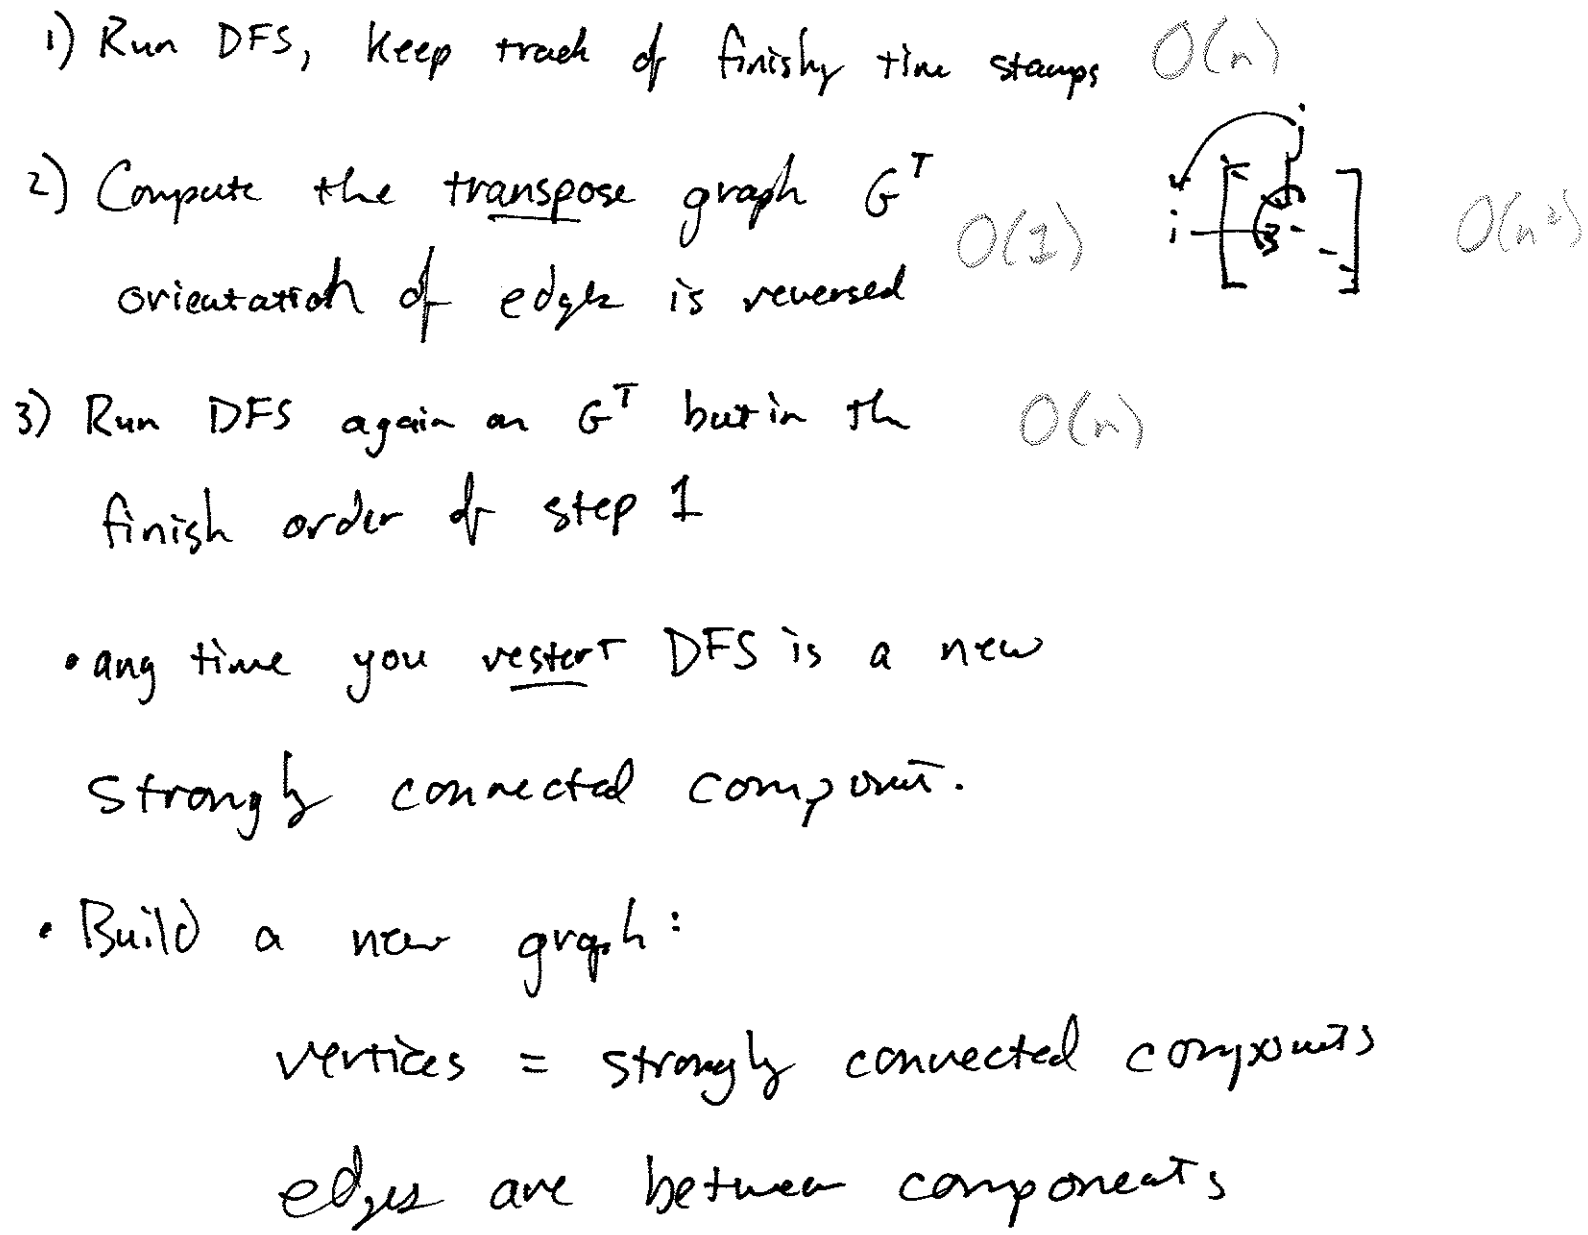 1) Run DFS, keep track of finishy time stamps O(n)
2) Compute the transpose graph G^T O(1) i j O(n²)
orientation of edges is reversed
3) Run DFS again on G^T but in th O(n)
finish order of step 1
• any time you restart DFS is a new
strongly connected component.
• Build a new graph:
vertices = strongly connected components
edges are between components